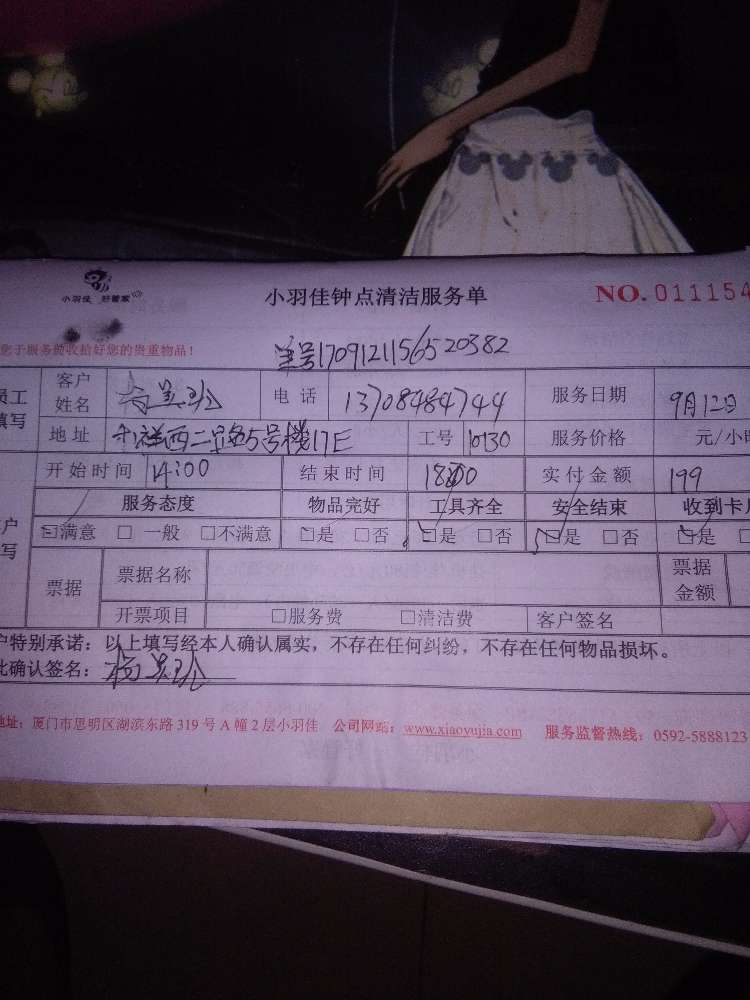 小羽佳 好管家
小羽佳钟点清洁服务单
NO. 011154
您于服务前收拾好您的贵重物品！
单号170912115652 0382
员工填写 客户姓名 电话 13708484744 服务日期 9月12日
地址 祥西二 5号楼17E 工号 10130 服务价格 元/小时
开始时间 14:00 结束时间 18:00 实付金额 199
服务态度 物品完好 工具齐全 安全结束 收到卡片
满意 □ 一般 □不满意 是 □否 是 □否 是 □否 是
票据 票据名称 票据金额
开票项目 □服务费 □清洁费 客户签名
户特别承诺：以上填写经本人确认属实，不存在任何纠纷，不存在任何物品损坏。
此确认签名：
地址：厦门市思明区湖滨东路 319 号 A 幢 2 层小羽佳 公司网站：www.xiaoyujia.com 服务监督热线：0592-5888123